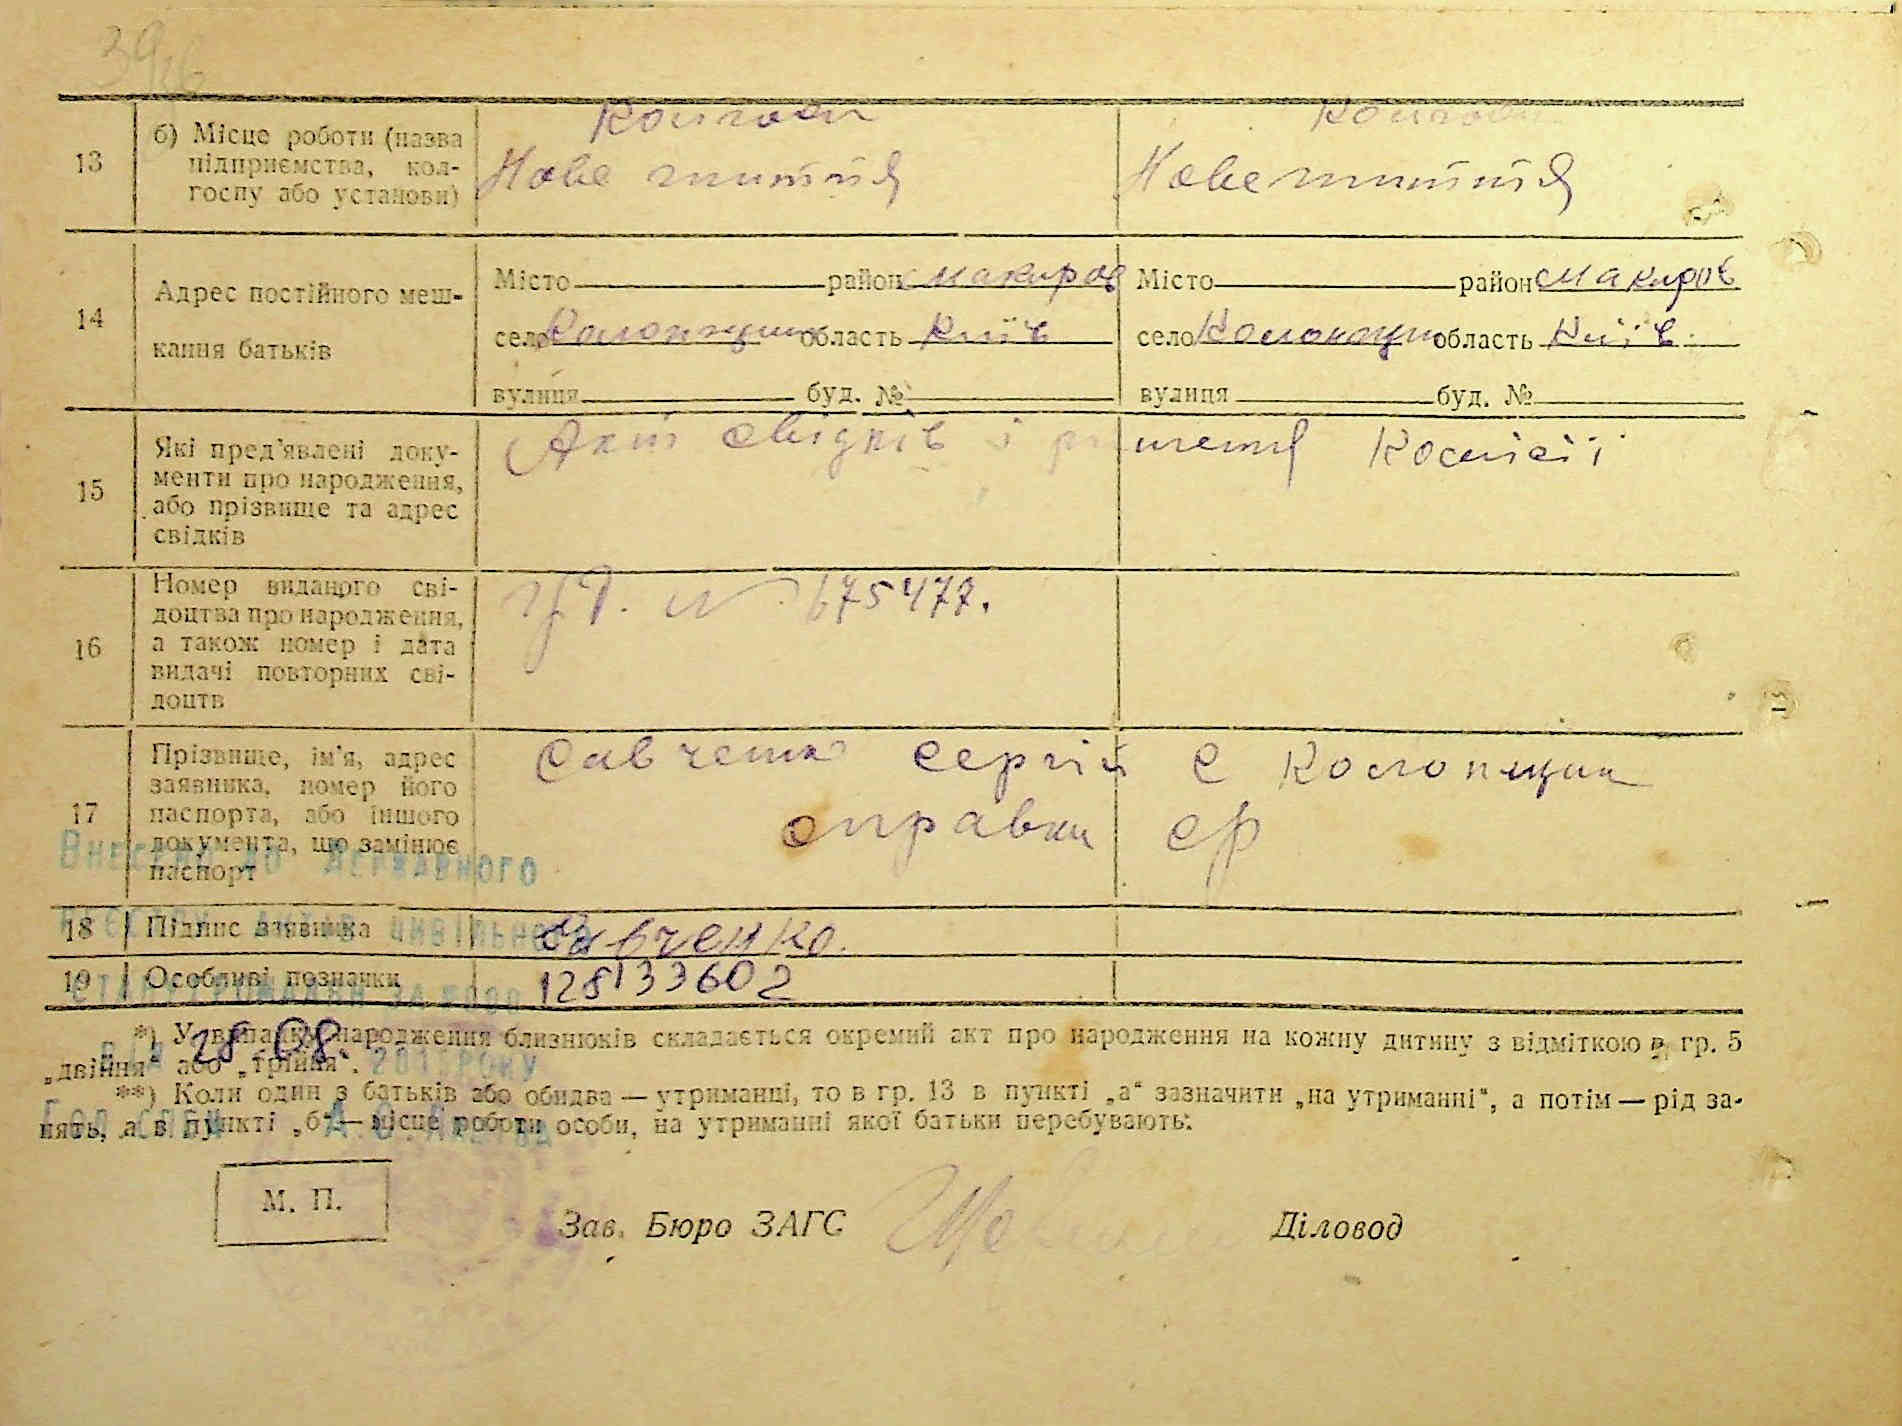 13
б) Місце роботи (назва
підприємства, кол-
госпу або установи)
Колгосп
Нове життя
Колгосп
Нове життя
14
Адрес постійного меш-
кання батьків
Місто район Макарів
село область Київ
вулиця буд. №
Місто район Макарів
село область Київ
вулиця буд. №
15
Які пред'явлені доку-
менти про народження,
або прізвище та адрес
свідків
Акт свідків і рішення Комісії
16
Номер виданого сві-
доцтва про народження,
а також номер і дата
видачі повторних сві-
доцтв
№ 675477.
17
Прізвище, ім'я, адрес
заявника, номер його
паспорта, або іншого
документа, що замінює
паспорт
Савченко Сергій с Колонщин
справки ср
18
Підпис заявника
Савченко.
19
Особливі позначки
128133602
Внесено до Державного
реєстру актів цивільного
стану громадян за №
від 28 08. 201 року
*) У випадку народження близнюків складається окремий акт про народження на кожну дитину з відміткою в гр. 5
„двійня" або „трійня".
**) Коли один з батьків або обидва — утриманці, то в гр. 13 в пункті „а" зазначити „на утриманні", а потім — рід за-
нять, а в пункті „б" — місце роботи особи, на утриманні якої батьки перебувають.
М. П.
Зав. Бюро ЗАГС
Діловод